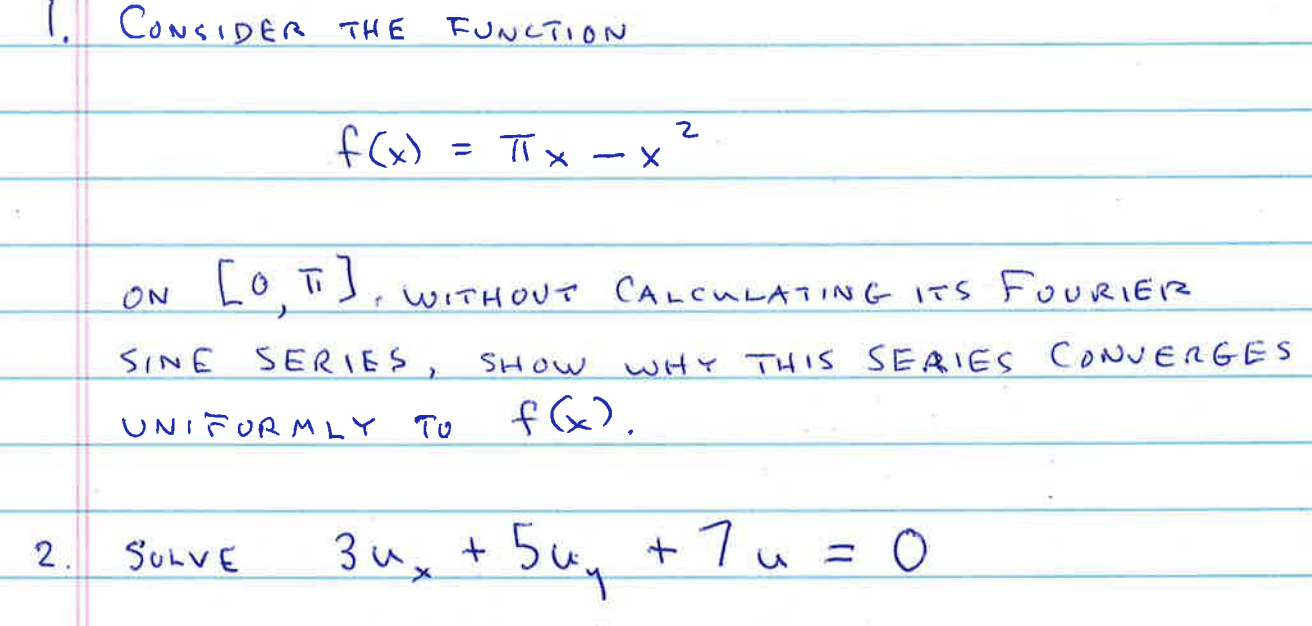 1. CONSIDER THE FUNCTION
f(x) = πx - x²
ON [0, π]. WITHOUT CALCULATING ITS FOURIER
SINE SERIES, SHOW WHY THIS SERIES CONVERGES
UNIFORMLY TO f(x).
2. SOLVE 3uₓ + 5u_y + 7u = 0